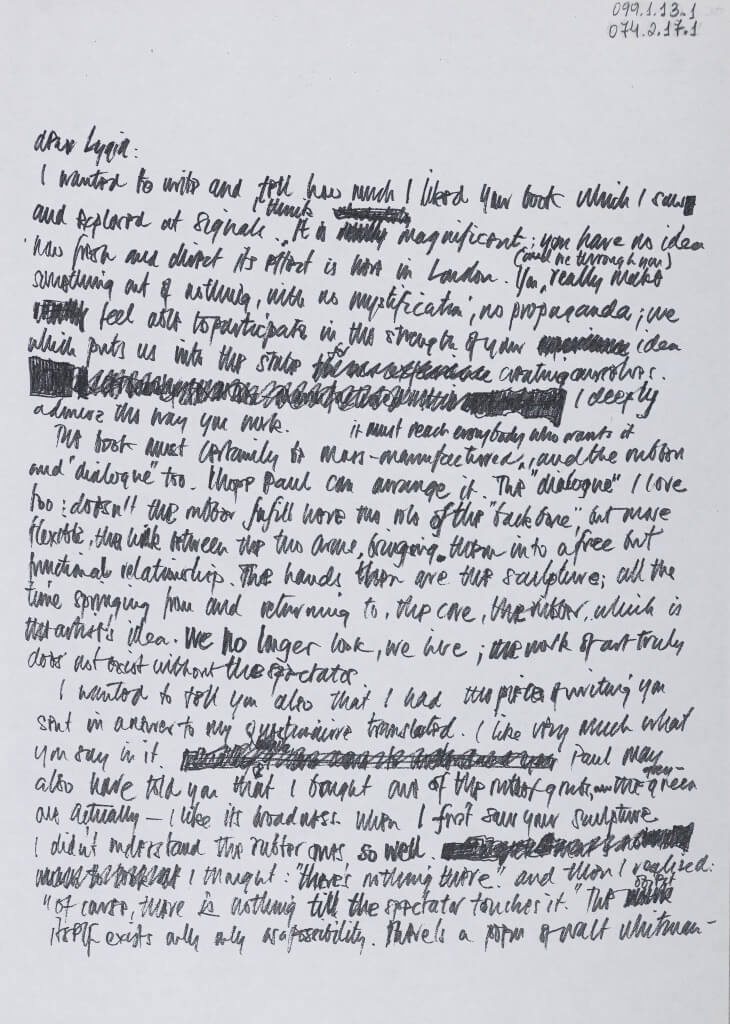 099.1.13.1
074.2.17.1
dear Lygia:
I wanted to write and tell how much I liked your book which I saw
and explored at Signals. I think It is magnificent; you have no idea
how fresh and direct its effect is here in London. You, (and we through you) really make
something out of nothing, with no mystification, no propaganda; we
feel able to participate in the strength of your idea
which puts us into the state of creating ourselves.
I deeply
admire the way you work.
it must reach everybody who wants it
The book must certainly be mass-manufactured, and the rubber
and "dialogue" too. I hope Paul can arrange it. The "dialogue" I love
too: doesn't the rubber fulfill here the role of the "backbone", but more
flexible, the link between the two arms, bringing them into a free but
functional relationship. The hands then are the sculpture; all the
time springing from and returning to, the core, the rubber, which is
the artist's idea. We no longer look, we live; the work of art truly
does not exist without the spectator
I wanted to tell you also that I had the piece of writing you
sent in answer to my questionnaire translated. I like very much what
you say in it. Paul may
also have told you that I bought one of the rubber grubs, the grey-green
one actually — I like its broadness. When I first saw your sculpture
I didn't understand the rubber ones so well.
I thought: "there's nothing there" and then I realized:
"Of course, there is nothing till the spectator touches it." The object
itself exists only only as a possibility. There's a poem of Walt Whitman –